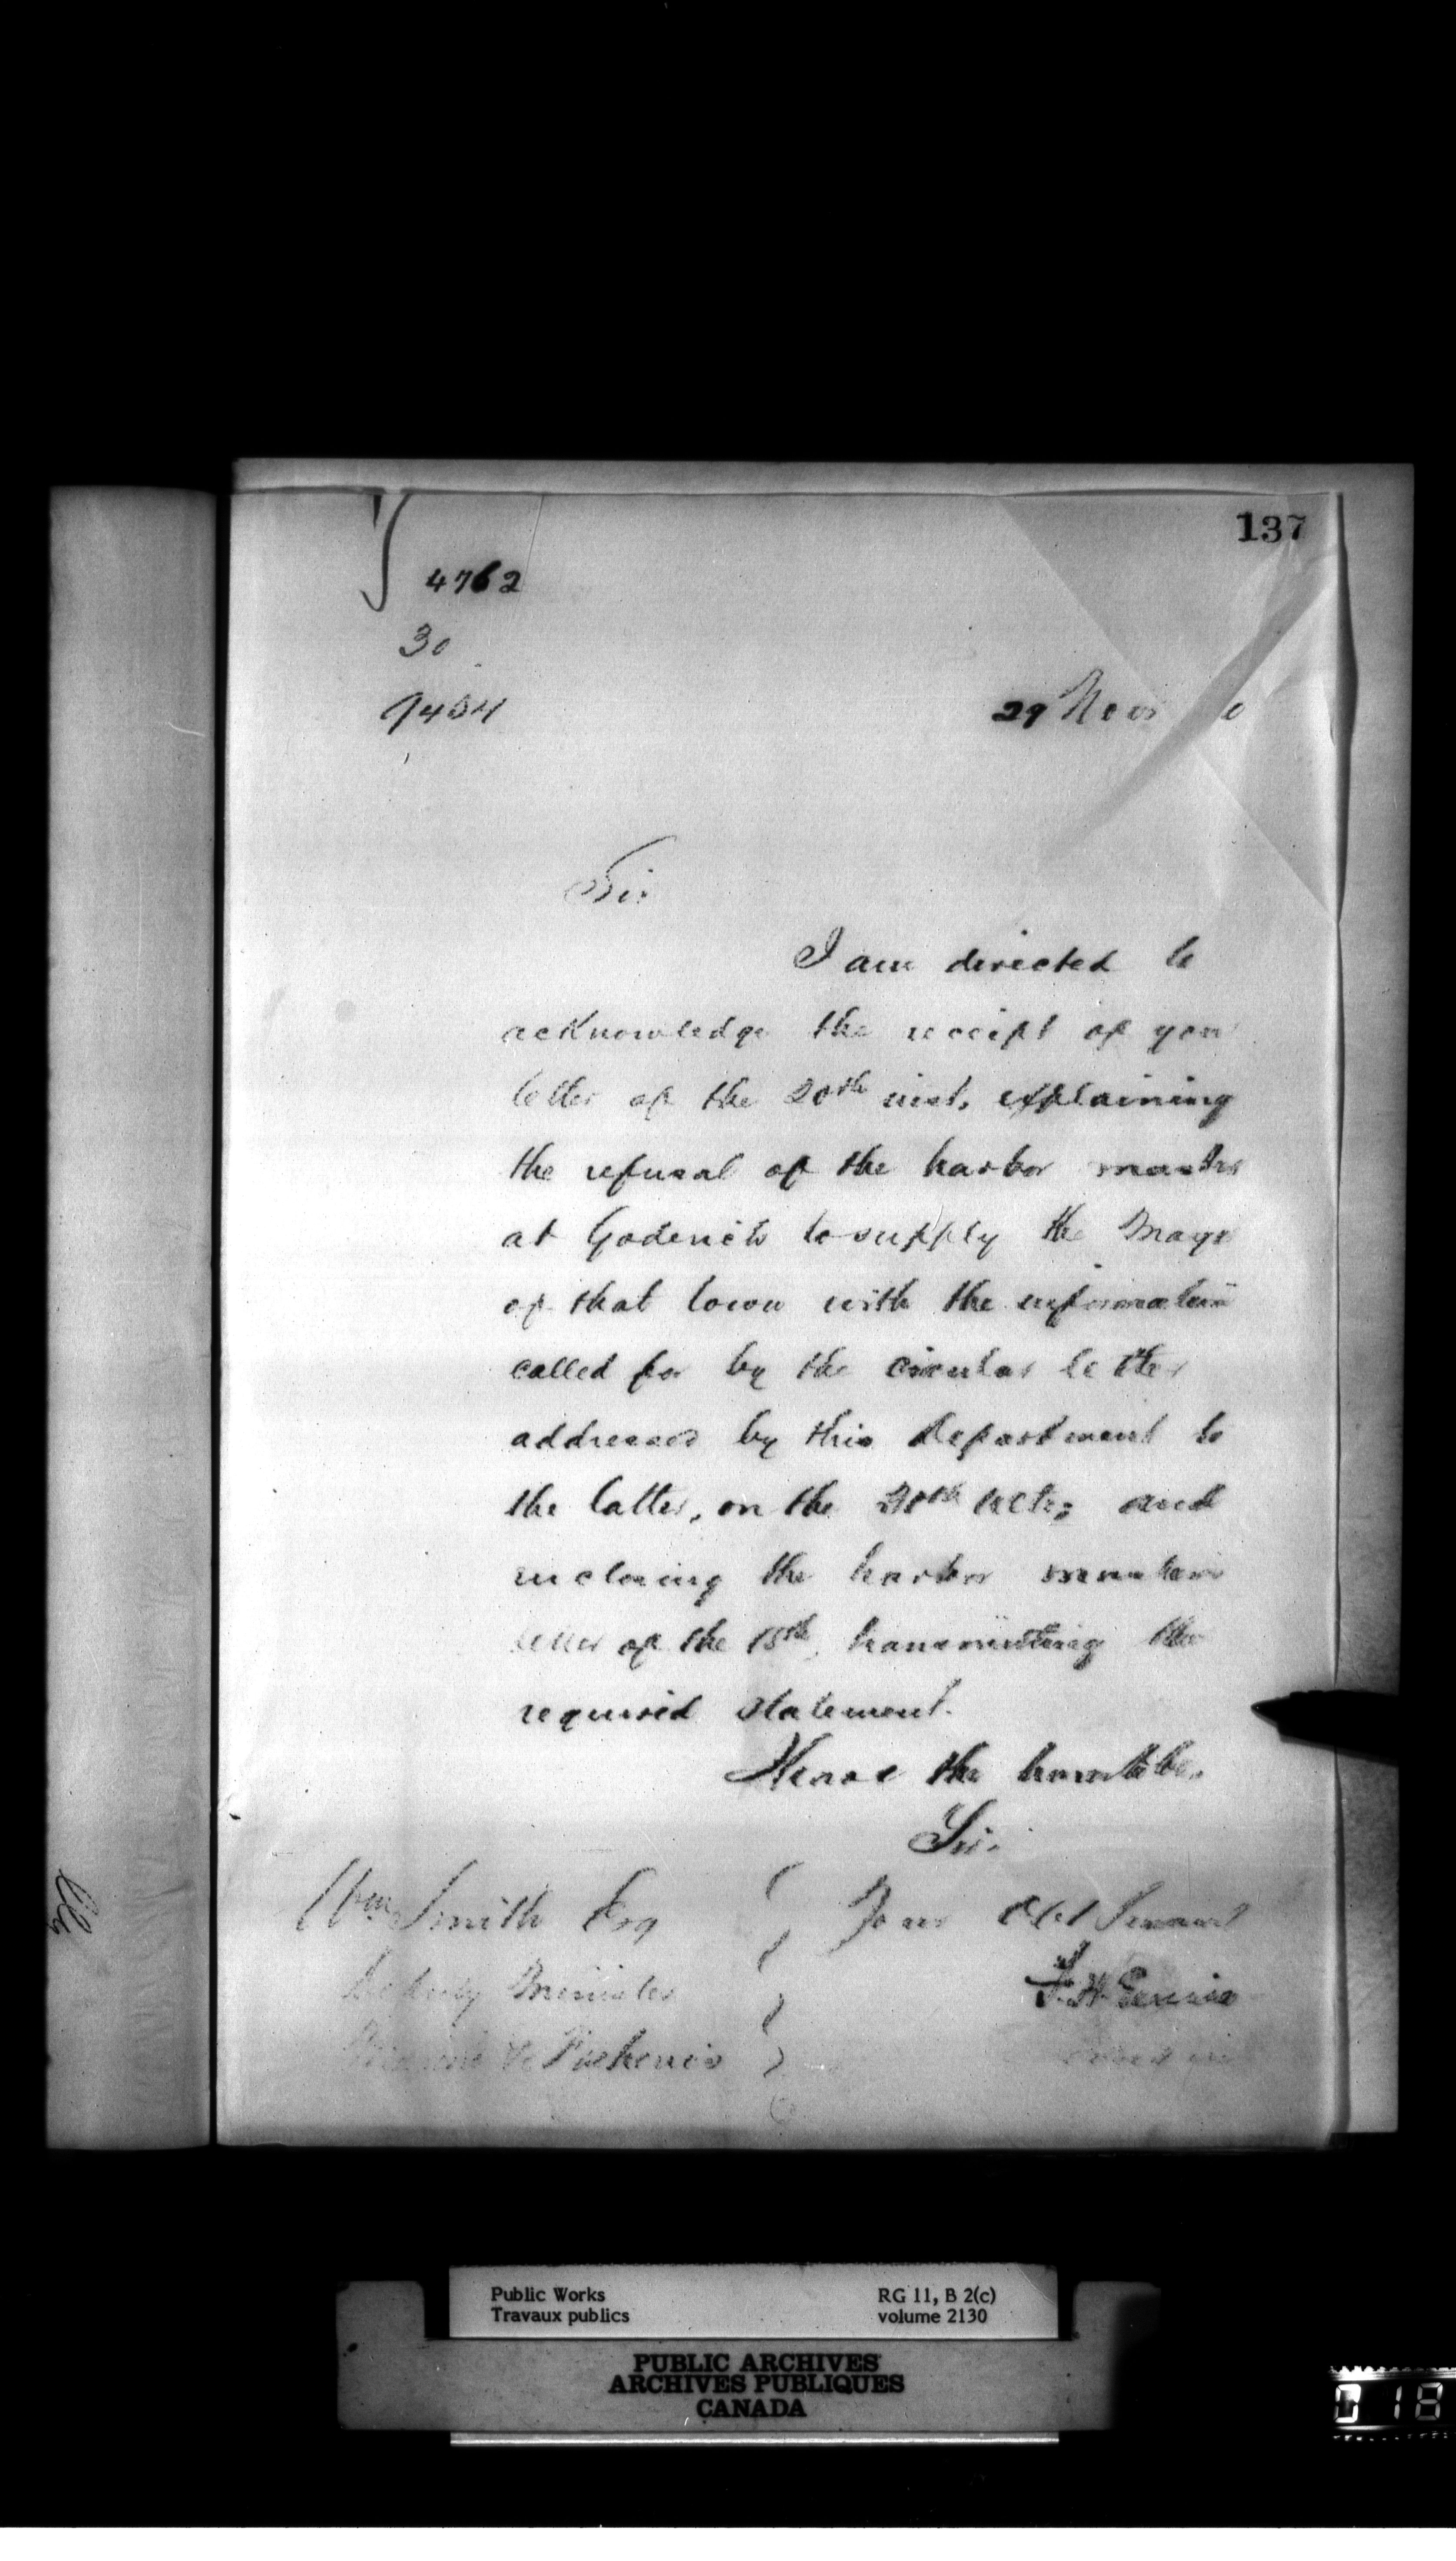 137
4762
30
29 Nov
Sir
I am directed to
acknowledge the receipt of your
letter of the 20th inst, explaining
the refusal of the harbor master
at Goderich to supply the Mayor
of that town with the information
called for by the circular letter
addressed by this Department to
the latter, on the ulto; and
inclosing the harbor masters
letter of the 15th, transmitting the
required statement.
I have the honor to be,
Sir,
Wm Smith Esq
Your Obt Servant
Deputy Minister
F. H. Ennis
Marine & Fisheries
Public Works
Travaux publics
RG 11, B 2(c)
volume 2130
PUBLIC ARCHIVES
ARCHIVES PUBLIQUES
CANADA
018